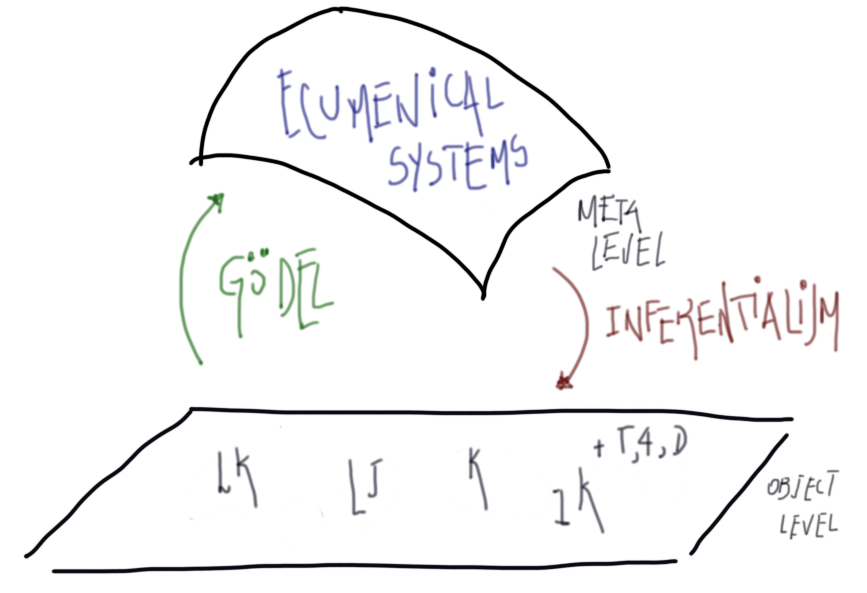 ECUMENiCAL
SYSTEMS
META
LEVEL
GÖDEL
INFERENTiALiSM
LK
LJ
K
IK + T, 4, D
OBJECT
LEVEL